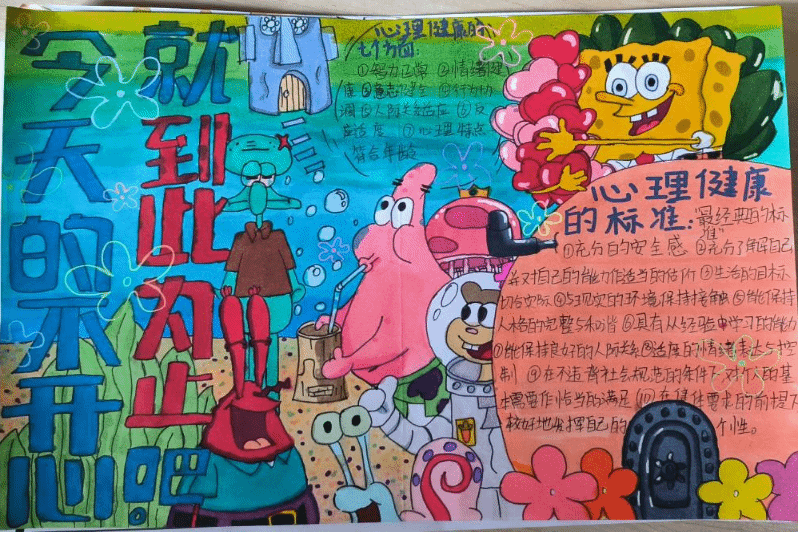 今天的不开心
就到此为止吧
心理健康的
七个方面:
①智力正常 ②情绪健
康 ③意志健全 ④行为协
调 ⑤人际关系适应 ⑥反
应适度 ⑦心理特点
符合年龄
心理健康
的标准:"最经典的标
准"
①充分的安全感 ②充分了解自己
并对自己的能力作适当的估价 ③生活的目标
切合实际 ④与现实的环境保持接触 ⑤能保持
人格的完整与和谐 ⑥具有从经验中学习的能力
⑦能保持良好的人际关系 ⑧适度的情绪表达与控
制 ⑨在不违背社会规范的条件下对个人的基
本需要作恰当的满足 ⑩在集体要求的前提下
较好地发挥自己的 个性。